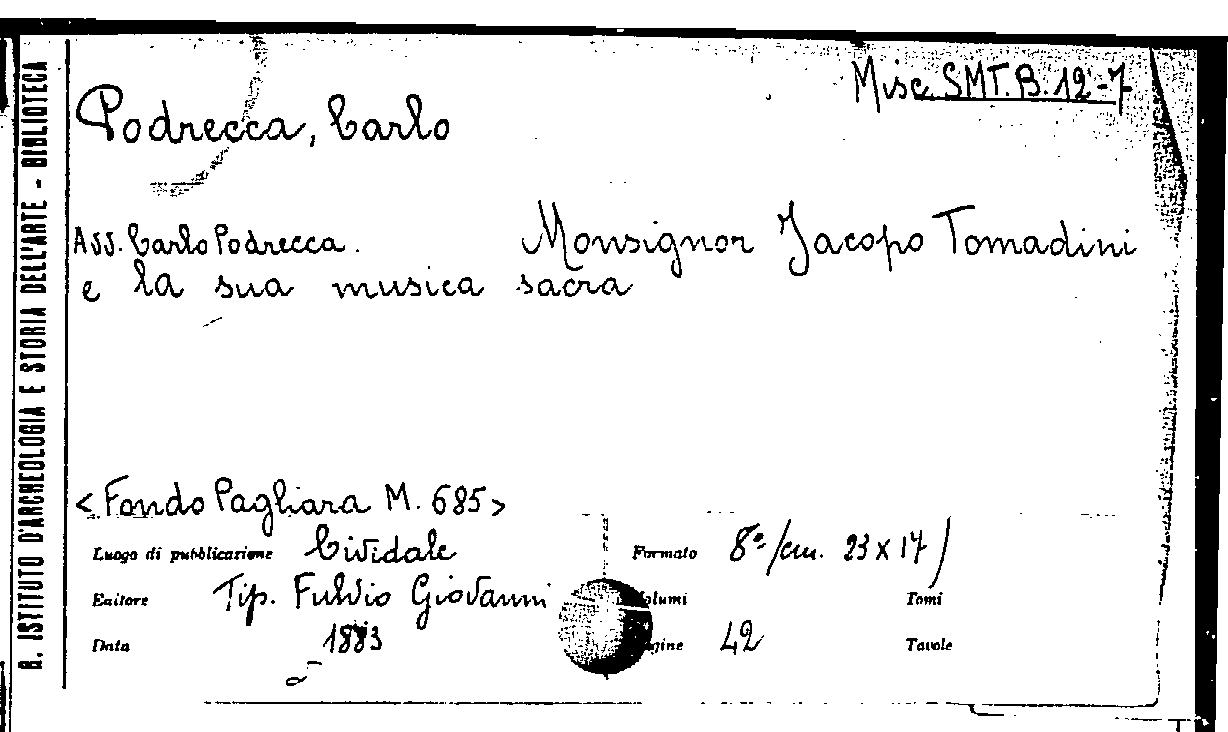 R. ISTITUTO D'ARCHEOLOGIA E STORIA DELL'ARTE - BIBLIOTECA
Misc. SMT. B. 12-7
Podrecca, Carlo
Ass. Carlo Podrecca. Monsignor Jacopo Tomadini
e la sua musica sacra
<Fondo Pagliara M. 685>
Luogo di pubblicazione Cividale Formato 8º (cm. 23 x 17)
Editore Tip. Fulvio Giovanni Tomi
Data 1883 42 Tavole